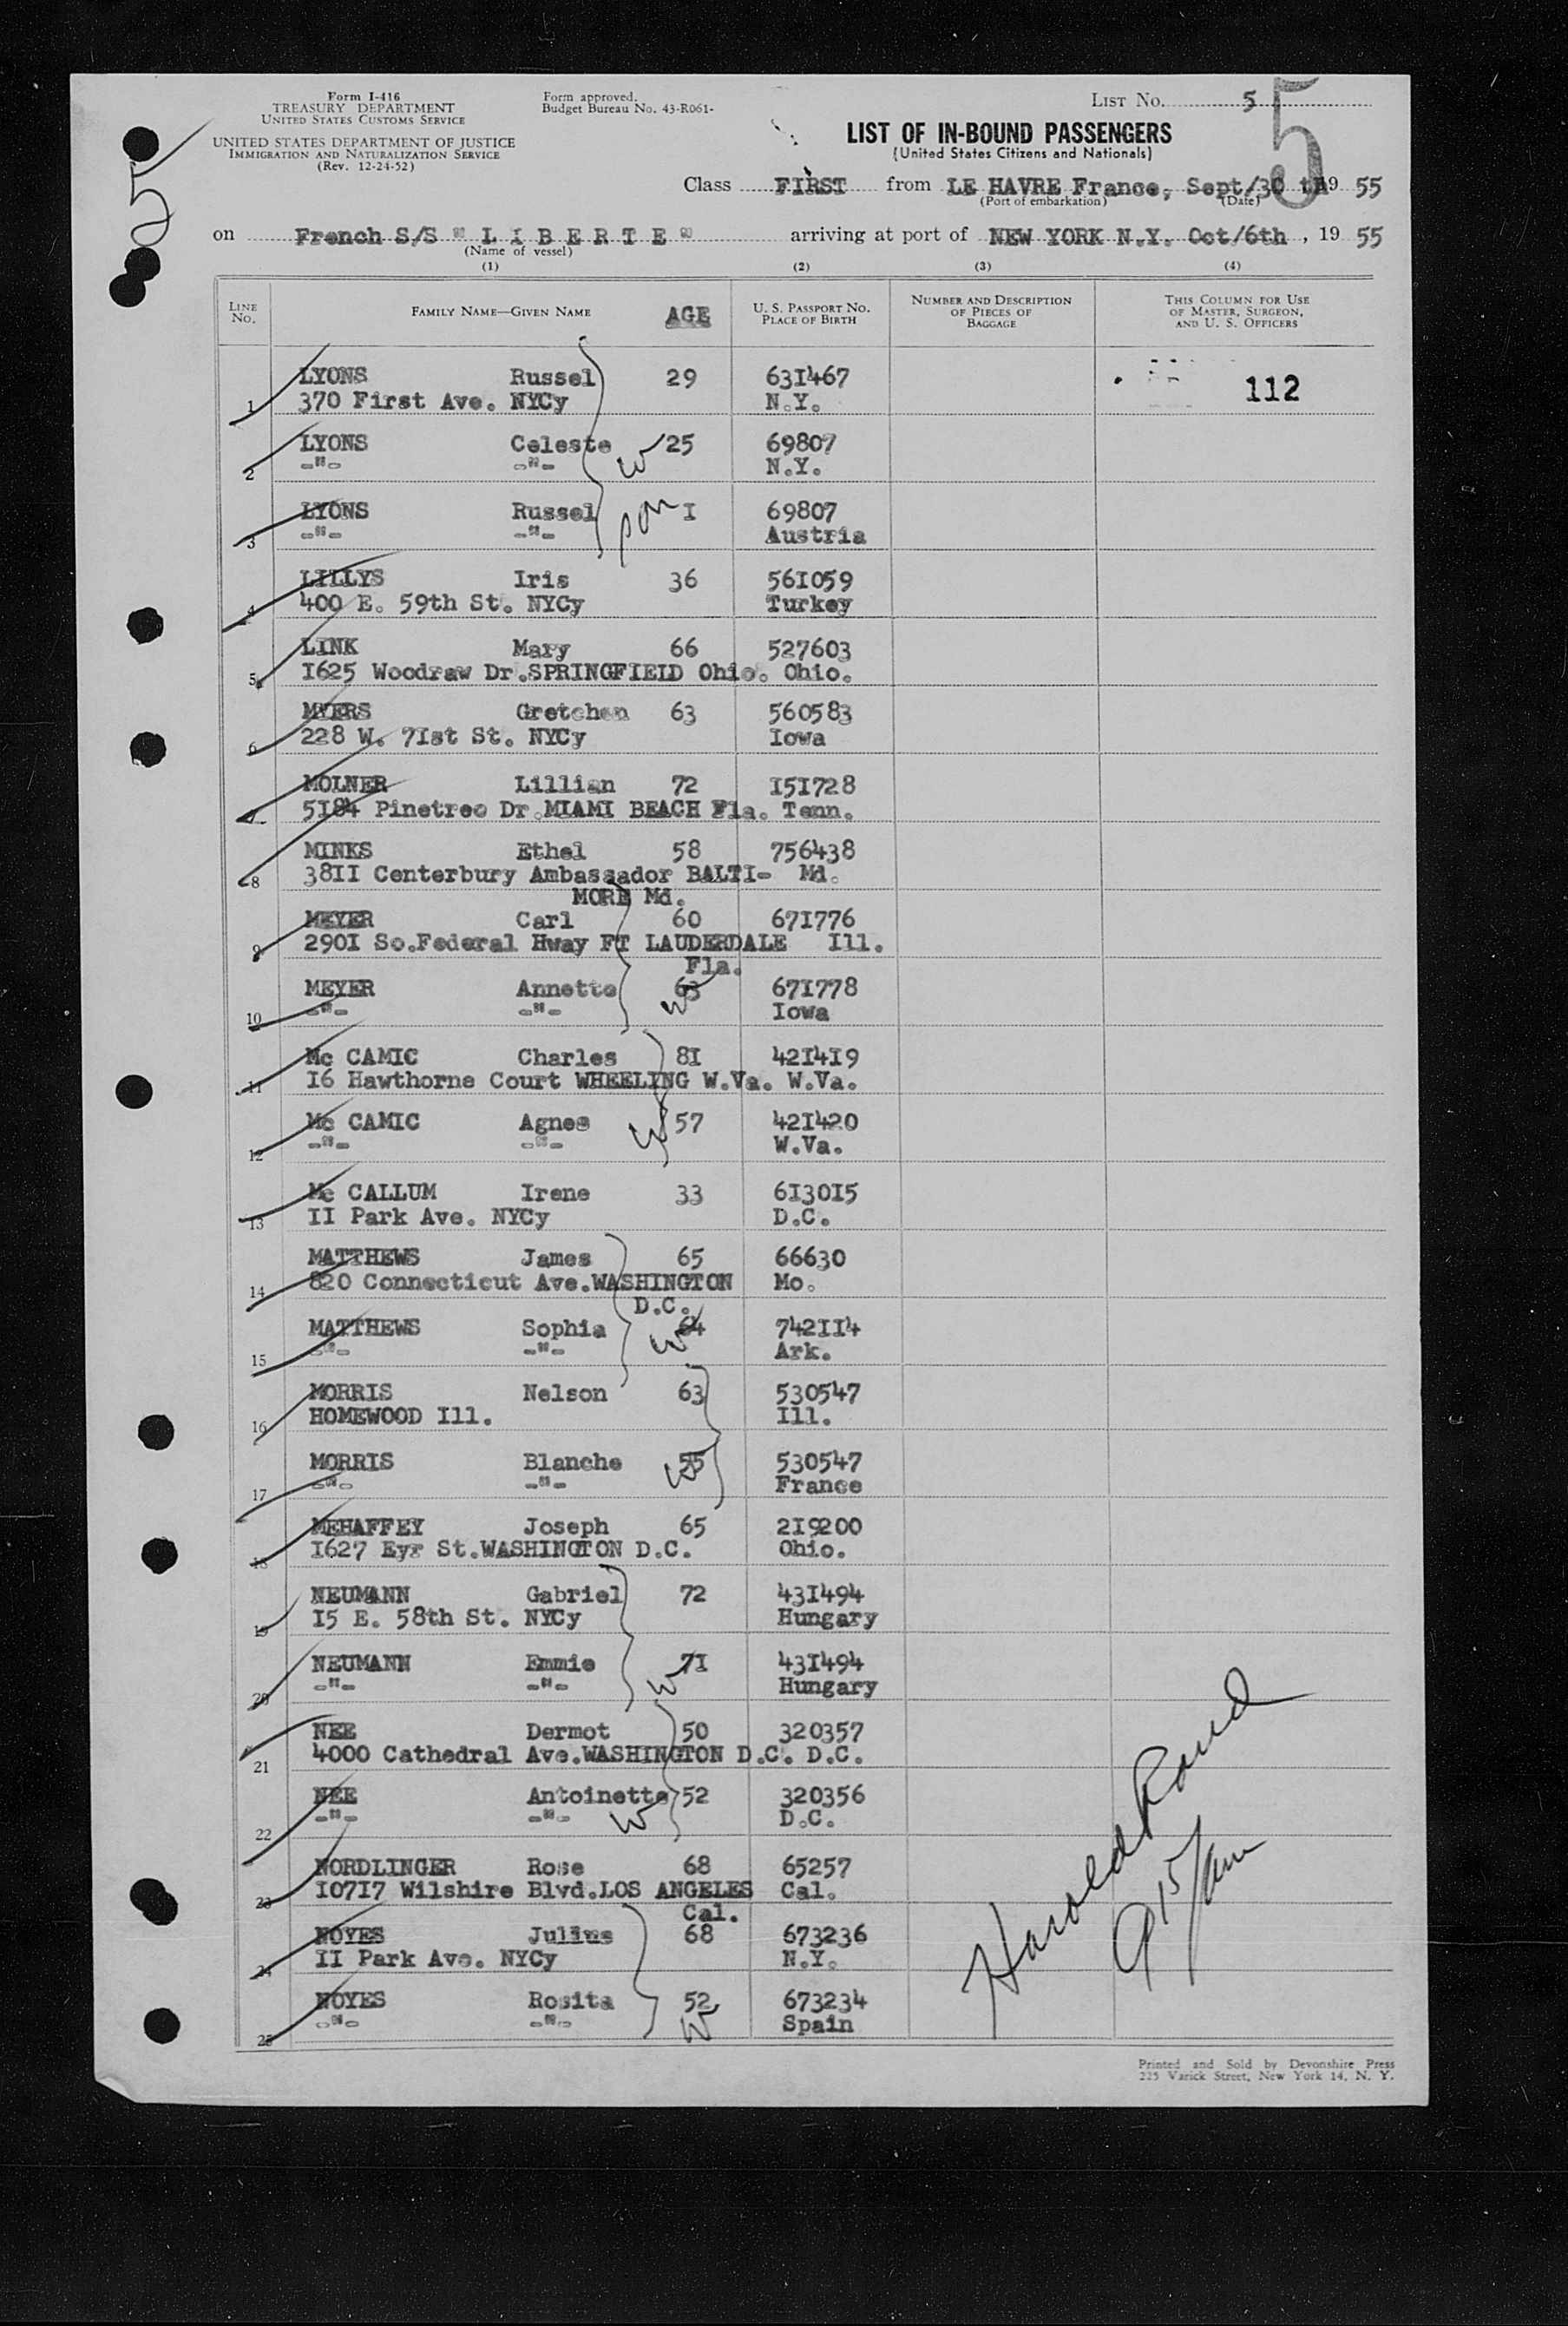 Form I-416
TREASURY DEPARTMENT
UNITED STATES CUSTOMS SERVICE
UNITED STATES DEPARTMENT OF JUSTICE
IMMIGRATION AND NATURALIZATION SERVICE
(Rev. 12-24-52)
Form approved.
Budget Bureau No. 43-R061-
LIST NO. 5
5
25
LIST OF IN-BOUND PASSENGERS
(United States Citizens and Nationals)
Class FIRST from LE HAVRE France, Sept/30 th 19 55
(Port of embarkation) (Date)
on French S/S " L I B E R T E " arriving at port of NEW YORK N.Y. Oct/6th , 19 55
(Name of vessel)
(1) (2) (3) (4)
LINE NO. FAMILY NAME—GIVEN NAME AGE U. S. PASSPORT NO. PLACE OF BIRTH NUMBER AND DESCRIPTION OF PIECES OF BAGGAGE THIS COLUMN FOR USE OF MASTER, SURGEON, AND U. S. OFFICERS
LYONS Russel 29 63I467 112
1 370 First Ave. NYCy N.Y.
LYONS Celeste W 25 69807
2 -"- -"- N.Y.
LYONS Russel son I 69807
3 -"- -"- Austria
LILLYS Iris 36 56I059
4 400 E. 59th St. NYCy Turkey
LINK Mary 66 527603
5 I625 Woodraw Dr.SPRINGFIELD Ohio. Ohio.
MYERS Gretchen 63 560583
6 228 W. 7Ist St. NYCy Iowa
MOLNER Lillian 72 I5I728
7 5I84 Pinetree Dr.MIAMI BEACH Fla. Tenn.
MINKS Ethel 58 756438
8 38II Centerbury Ambassador BALTI- Md.
MORE Md.
MEYER Carl 60 67I776
9 290I So.Federal Hway FT LAUDERDALE Ill.
Fla.
MEYER Annette W 63 67I778
10 -"- -"- Iowa
Mc CAMIC Charles 8I 42I4I9
11 I6 Hawthorne Court WHEELING W.Va. W.Va.
Mc CAMIC Agnes W 57 42I420
12 -"- -"- W.Va.
Mc CALLUM Irene 33 6I30I5
13 II Park Ave. NYCy D.C.
MATTHEWS James 65 66630
14 820 Connecticut Ave.WASHINGTON Mo.
D.C.
MATTHEWS Sophia W 64 742II4
15 -"- -"- Ark.
MORRIS Nelson 63 530547
16 HOMEWOOD Ill. Ill.
MORRIS Blanche W 55 530547
17 -"- -"- France
MEHAFFEY Joseph 65 2I9200
18 I627 Eyr St.WASHINGTON D.C. Ohio.
NEUMANN Gabriel 72 43I494
19 I5 E. 58th St. NYCy Hungary
NEUMANN Emmie W 7I 43I494
20 -"- -"- Hungary
NEE Dermot 50 320357
21 4000 Cathedral Ave.WASHINGTON D.C. D.C.
NEE Antoinette W 52 320356
22 -"- -"- D.C.
NORDLINGER Rose 68 65257
23 I07I7 Wilshire Blvd.LOS ANGELES Cal.
Cal.
NOYES Julius 68 673236
24 II Park Ave. NYCy N.Y.
NOYES Rosita W 52 673234
25 -"- -"- Spain
Harold Rand
9 15/am
Printed and Sold by Devonshire Press
225 Varick Street, New York 14, N. Y.